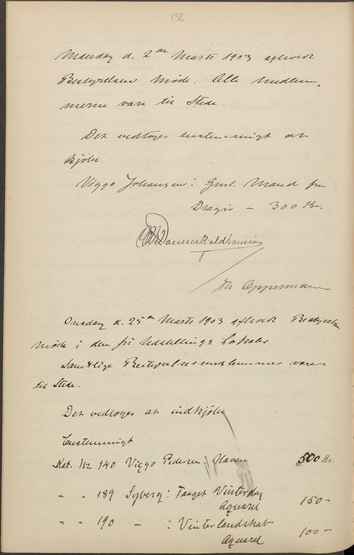 132
Mandag d. 2den Marts 1903 afholdt
Bestyrelsen Møde. Alle Medlem-
merne vare til Stede.
Det vedtoges eenstemmigt at
kjøbe
Viggo Johansen: Gml. Mand fra
Dragør – 300 Kr.
Th. Oppermann
Onsdag d. 25de Marts 1903 afholdt Bestyrelsen
Møde i den fri Udstillings Lokaler
Samtlige Bestyrelsesmedlemmer vare
til Stede.
Det vedtoges at indkjøbe
Eenstemmigt
Kat. Nr. 140 Viggo Pedersen 500 Kr.
" " 189 Syberg: Faaget Vinterdag
Aquarel 150 –
" " 190 – : Vinterlandskab
Aquarel 100 –